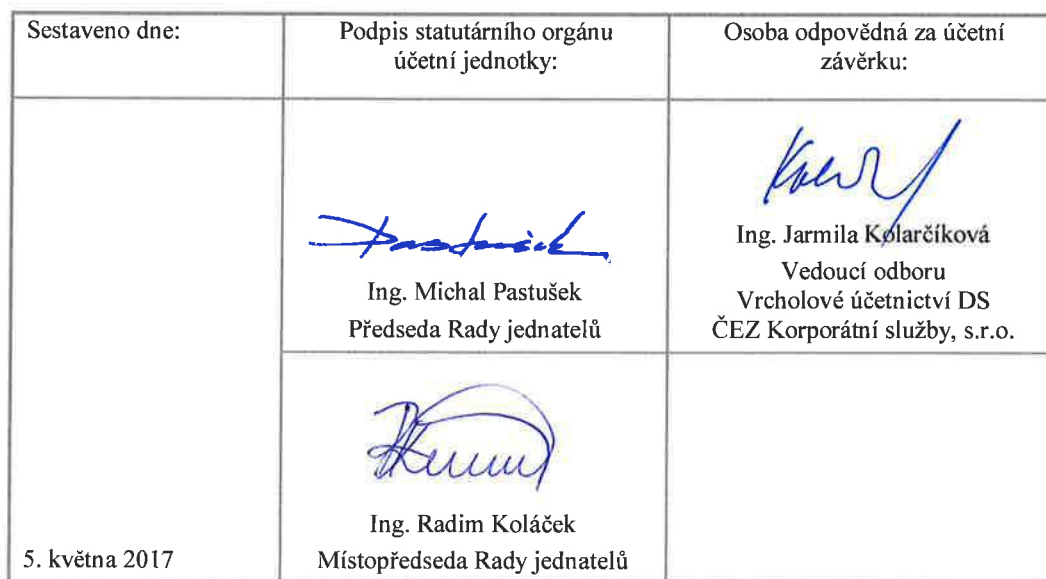 Sestaveno dne:
Podpis statutárního orgánu
účetní jednotky:
Osoba odpovědná za účetní
závěrku:
Ing. Michal Pastušek
Předseda Rady jednatelů
Ing. Jarmila Kolarčíková
Vedoucí odboru
Vrcholové účetnictví DS
ČEZ Korporátní služby, s.r.o.
5. května 2017
Ing. Radim Koláček
Místopředseda Rady jednatelů